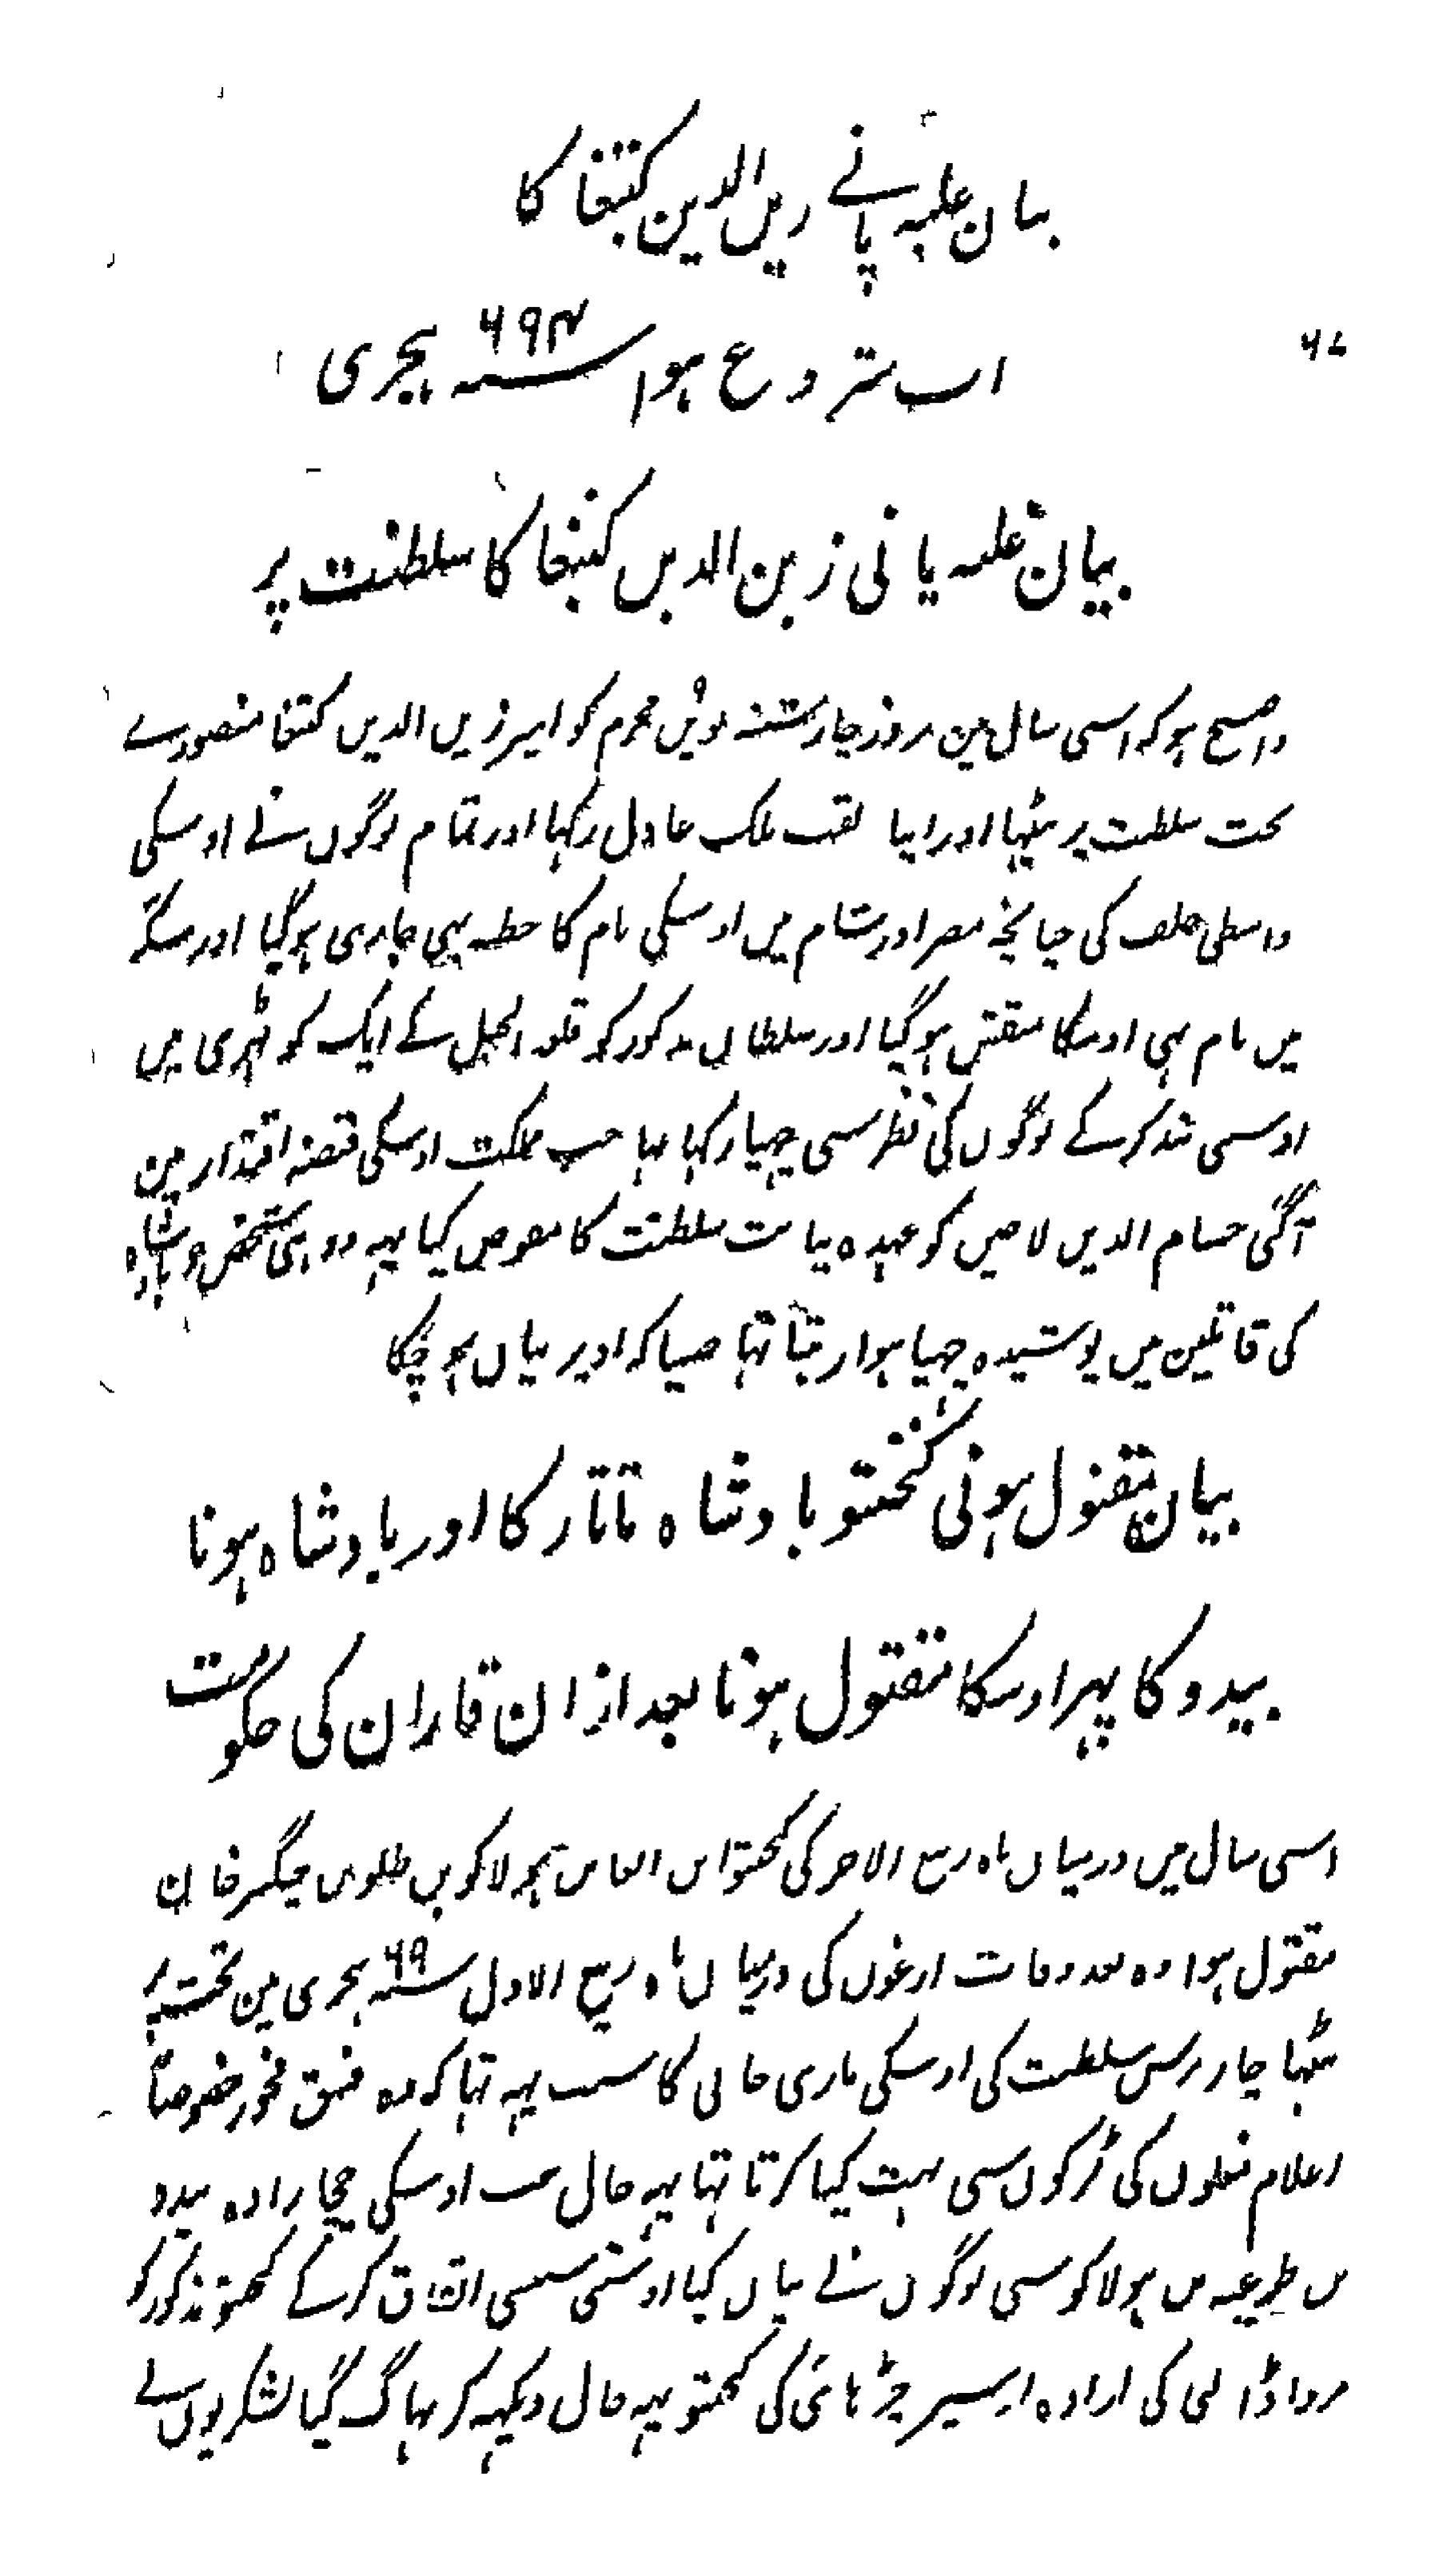 بیان غلبہ پانے زین الدین کتبغا کا
۶۷
اب شروع ہوا سنہ ۶۹۴ ہجری
بیان غلبہ پانی زین الدین کتبغا کا سلطنت پر
واضح ہو کہ اسی سال مین بروز چارشنبہ نویں محرم کو امیر زین الدین کتبغا منصورے
تخت سلطنت پر بیٹہا اور اپنا لقب ملک عادل رکہا اور تمام لوگوں نے اوسکی
واسطی حلف کی چنانچہ مصر اور شام میں اوسکی نام کا خطبہ بہی جاری ہوگیا اور سکّہ
میں نام بہی اوسکا منقش ہو گیا اور سلطان مذکور کو قلعہ الجبل کے ایک کوٹہری میں
اوسی بند کرکے لوگوں کی نظر سی چہپا رکہا تہا جب مملکت اوسکی قبضہ اقتدار مین
آگئی حسام الدین لاجین کو عہدہ نیابت سلطنت کا مفوض کیا یہہ وہ ہی شخص جو بادشاہ
کی قاتلین میں پوشیدہ چہپا ہوا رہتا تہا جیسا کہ اوپر بیان ہو چکا
بیان مقتول ہونی کنختو بادشاہ تاتار کا اور بادشاہ ہونا
بیدو کا پہر اوسکا مقتول ہونا بعد ازان قازان کی حکومت
اسی سال میں درمیان ماہ ربیع الاخر کی کنختو ابن ابغا بن ہولاکو بن طلو بن چنگیز خان
مقتول ہوا وہ بعد وفات ارغون کی درمیان ماہ ربیع الاول سنہ ۶۹ ہجری مین تخت پر
بیٹہا چار برس سلطنت کی اوسکی ماری جانی کا سبب یہہ تہا کہ وہ فسق فجور خصوصاً
اغلام مغلوں کی لڑکوں سی بہت کیا کرتا تہا یہہ حال جب اوسکی چچا زادہ بیدو
بن طرغیہ بن ہولاکو سی لوگوں نے بیان کیا اوسنی سبسی اتفاق کرکے کنختو مذکور کو
مروا ڈالنی کی ارادہ اوسپر چڑہائی کی کنختو یہہ حال دیکہہ کر بہاگ گیا لشکریوں نے